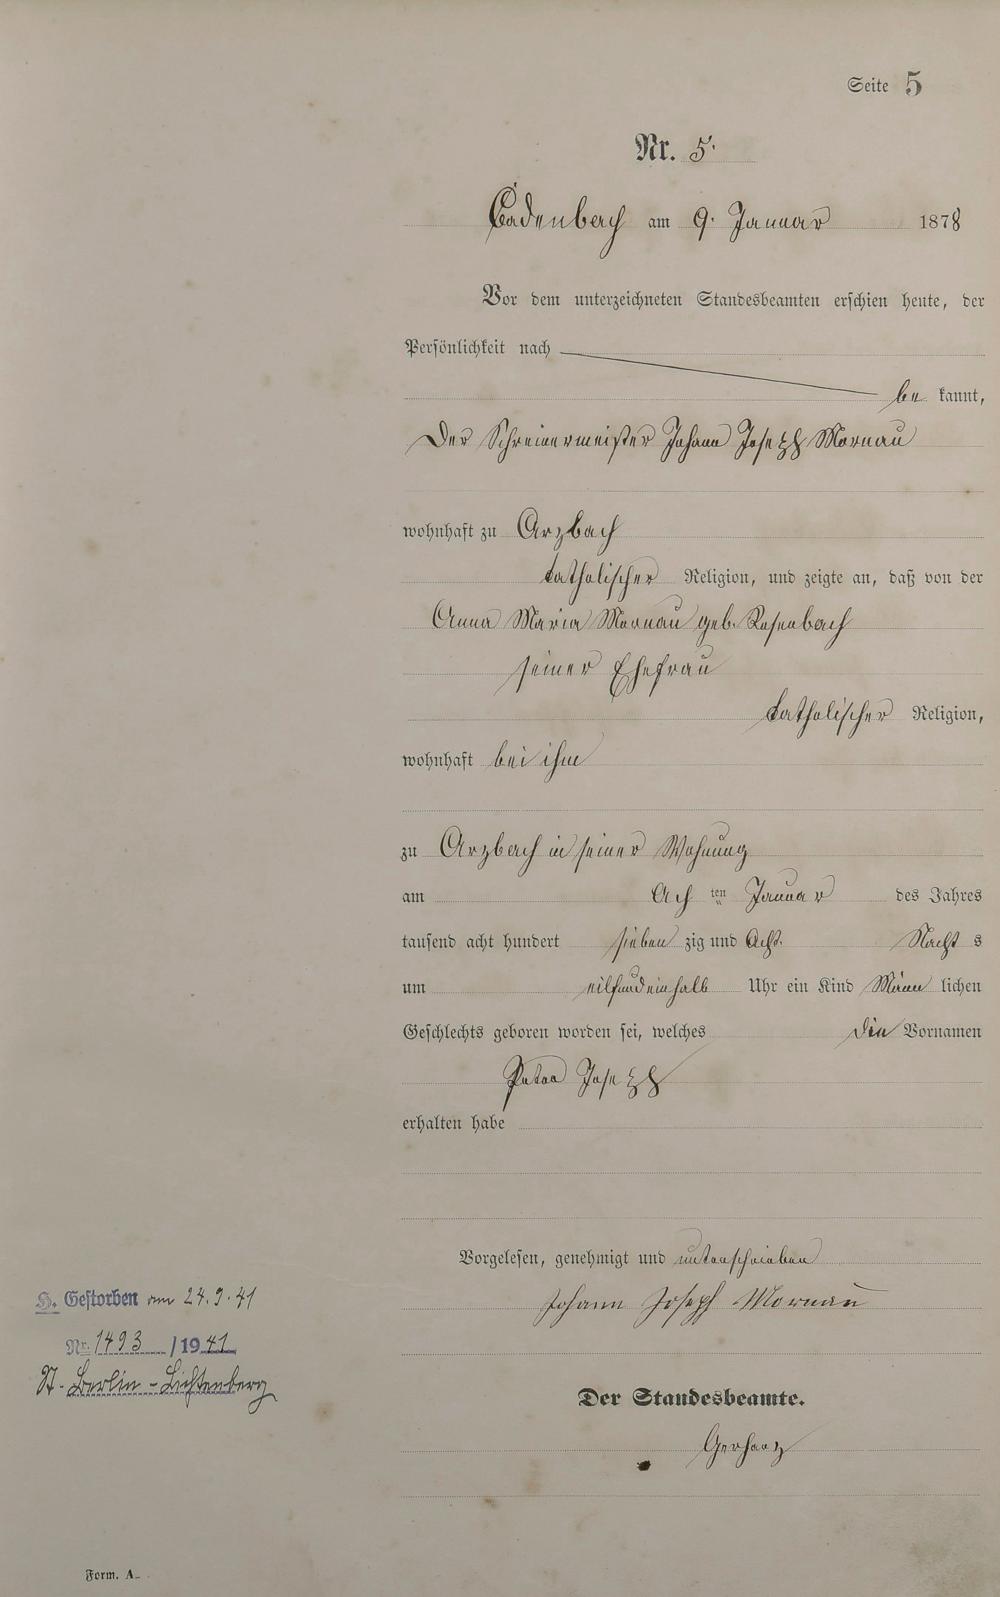 Seite 5
Nr. 5.
Cadenbach am 9. Januar 1878
Vor dem unterzeichneten Standesbeamten erschien heute, der
Persönlichkeit nach
be kannt,
Der Schreinermeister Johann Joseph Mornau
wohnhaft zu Arzbach
katholischer Religion, und zeigte an, daß von der
Anna Maria Mornau geb. Rosenbach
seiner Ehefrau
katholischer Religion,
wohnhaft bei ihm
zu Arzbach in seiner Wohnung
am Ach ten Januar des Jahres
tausend acht hundert sieben zig und Acht. Nacht s
um eilfundeinhalb Uhr ein Kind Männ lichen
Geschlechts geboren worden sei, welches die Vornamen
Peter Joseph
erhalten habe
Vorgelesen, genehmigt und unterschrieben
Johann Joseph Mornau
Der Standesbeamte.
Gerharz
H. Gestorben am 24.9.41
Nr. 1493 / 1941
St. Berlin-Lichtenberg
Form. A.